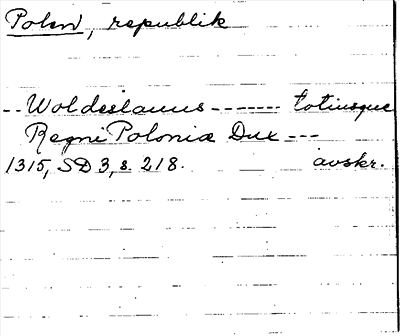 Polen, republik
-- Woldeslauus ------- totiusque
Regni Poloniæ Dux ---
1315, SD 3, s. 218. avskr.